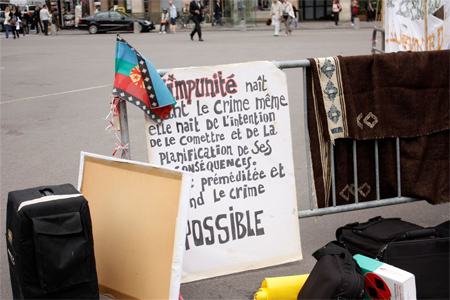 impunité naît
nt le crime même
elle naît de l'intention
de le comettre et de la
planification de ses
conséquences.
préméditée et
nd le crime
possible